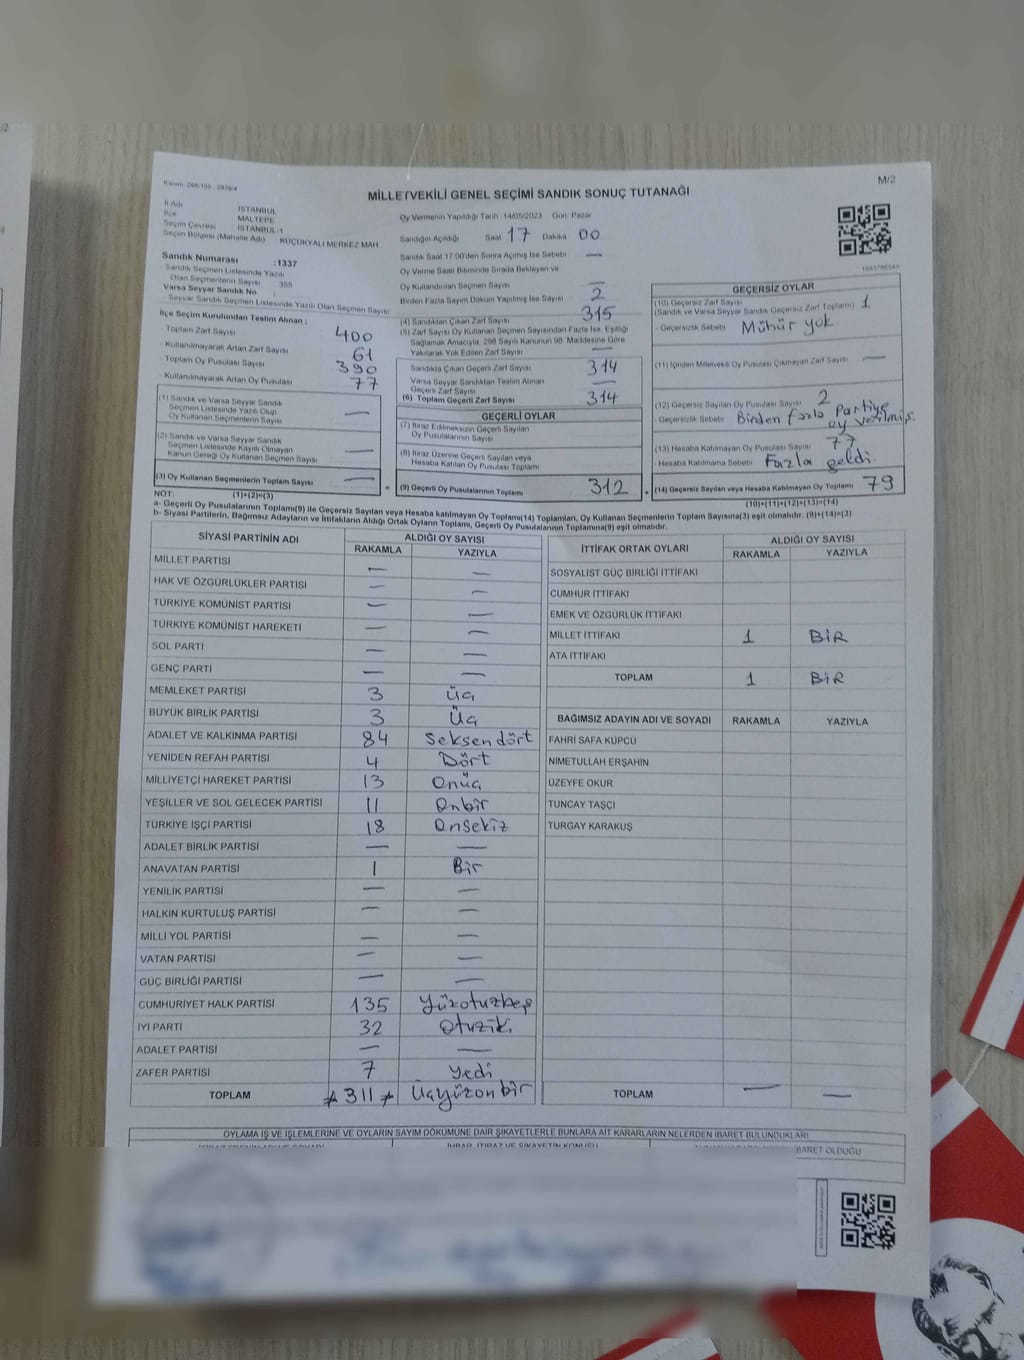 Kanun: 298/105 , 2839/4
MİLLETVEKİLİ GENEL SEÇİMİ SANDIK SONUÇ TUTANAĞI
M/2
İl Adı İSTANBUL
İlçe MALTEPE
Seçim Çevresi İSTANBUL-1
Seçim Bölgesi (Mahalle Adı) KÜÇÜKYALI MERKEZ MAH
Sandık Numarası :1337
Sandık Seçmen Listesinde Yazılı
Olan Seçmenlerin Sayısı : 355
Varsa Seyyar Sandık No
Seyyar Sandık Seçmen Listesinde Yazılı Olan Seçmen Sayısı
İlçe Seçim Kurulundan Teslim Alınan ;
- Toplam Zarf Sayısı 400
- Kullanılmayarak Artan Zarf Sayısı 61
- Toplam Oy Pusulası Sayısı 390
- Kullanılmayarak Artan Oy Pusulası 77
(1) Sandık ve Varsa Seyyar Sandık
Seçmen Listesinde Yazılı Olup
Oy Kullanan Seçmenlerin Sayısı —
(2) Sandık ve Varsa Seyyar Sandık
Seçmen Listesinde Kayıtlı Olmayan
Kanun Gereği Oy Kullanan Seçmen Sayısı —
(3) Oy Kullanan Seçmenlerin Toplam Sayısı —
Oy Vermenin Yapıldığı Tarih 14/05/2023 Gün Pazar
Sandığın Açıldığı Saat 17 Dakika 00
Sandık Saat 17.00'den Sonra Açılmış İse Sebebi —
Oy Verme Saati Bitiminde Sırada Bekleyen ve
Oy Kullandırılan Seçmen Sayısı —
Birden Fazla Sayım Döküm Yapılmış İse Sayısı 2
(4) Sandıktan Çıkan Zarf Sayısı 315
(5) Zarf Sayısı Oy Kullanan Seçmen Sayısından Fazla İse, Eşitliği
Sağlamak Amacıyla, 298 Sayılı Kanunun 98. Maddesine Göre
Yakılarak Yok Edilen Zarf Sayısı —
Sandıkta Çıkan Geçerli Zarf Sayısı 314
Varsa Seyyar Sandıktan Teslim Alınan
Geçerli Zarf Sayısı —
(6) Toplam Geçerli Zarf Sayısı 314
GEÇERLİ OYLAR
(7) İtiraz Edilmeksizin Geçerli Sayılan
Oy Pusulalarının Sayısı
(8) İtiraz Üzerine Geçerli Sayılan veya
Hesaba Katılan Oy Pusulası Toplamı
= (9) Geçerli Oy Pusulalarının Toplamı 312
GEÇERSİZ OYLAR
(10) Geçersiz Zarf Sayısı
(Sandık ve Varsa Seyyar Sandık Geçersiz Zarf Toplamı) 1
- Geçersizlik Sebebi Mühür yok.
(11) İçinden Milletvekili Oy Pusulası Çıkmayan Zarf Sayısı —
(12) Geçersiz Sayılan Oy Pusulası Sayısı 2
- Geçersizlik Sebebi Birden fazla Partiye
oy verilmiş.
(13) Hesaba Katılmayan Oy Pusulası Sayısı 77
- Hesaba Katılmama Sebebi Fazla geldi.
+ (14) Geçersiz Sayılan veya Hesaba Katılmayan Oy Toplamı 79
NOT: (1)+(2)=(3) (10)+(11)+(12)+(13)=(14)
a- Geçerli Oy Pusulalarının Toplamı(9) ile Geçersiz Sayılan veya Hesaba katılmayan Oy Toplamı(14) Toplamları, Oy Kullanan Seçmenlerin Toplam Sayısına(3) eşit olmalıdır. (9)+(14)=(3)
b- Siyasi Partilerin, Bağımsız Adayların ve İttifakların Aldığı Ortak Oyların Toplamı, Geçerli Oy Pusulalarının Toplamına(9) eşit olmalıdır.
SİYASİ PARTİNİN ADI ALDIĞI OY SAYISI
RAKAMLA YAZIYLA
MİLLET PARTİSİ — —
HAK VE ÖZGÜRLÜKLER PARTİSİ — —
TÜRKİYE KOMÜNİST PARTİSİ — —
TÜRKİYE KOMÜNİST HAREKETİ — —
SOL PARTİ — —
GENÇ PARTİ — —
MEMLEKET PARTİSİ 3 üç
BÜYÜK BİRLİK PARTİSİ 3 üç
ADALET VE KALKINMA PARTİSİ 84 Seksendört
YENİDEN REFAH PARTİSİ 4 Dört
MİLLİYETÇİ HAREKET PARTİSİ 13 Onüç
YEŞİLLER VE SOL GELECEK PARTİSİ 11 Onbir
TÜRKİYE İŞÇİ PARTİSİ 18 Onsekiz
ADALET BİRLİK PARTİSİ — —
ANAVATAN PARTİSİ 1 Bir
YENİLİK PARTİSİ — —
HALKIN KURTULUŞ PARTİSİ — —
MİLLİ YOL PARTİSİ — —
VATAN PARTİSİ — —
GÜÇ BİRLİĞİ PARTİSİ — —
CUMHURİYET HALK PARTİSİ 135 Yüzotuzbeş
İYİ PARTİ 32 Otuziki
ADALET PARTİSİ — —
ZAFER PARTİSİ 7 Yedi
TOPLAM ≠311≠ Üçyüzonbir
İTTİFAK ORTAK OYLARI ALDIĞI OY SAYISI
RAKAMLA YAZIYLA
SOSYALİST GÜÇ BİRLİĞİ İTTİFAKI
CUMHUR İTTİFAKI
EMEK VE ÖZGÜRLÜK İTTİFAKI
MİLLET İTTİFAKI 1 BİR
ATA İTTİFAKI
TOPLAM 1 BİR
BAĞIMSIZ ADAYIN ADI VE SOYADI RAKAMLA YAZIYLA
FAHRİ SAFA KÜPCÜ
NİMETULLAH ERŞAHİN
ÜZEYFE OKUR
TUNCAY TAŞÇI
TURGAY KARAKUŞ
TOPLAM — —
OYLAMA İŞ VE İŞLEMLERİNE VE OYLARIN SAYIM DÖKÜMÜNE DAİR ŞİKAYETLERLE BUNLARA AİT KARARLARIN NELERDEN İBARET BULUNDUKLARI
İHBAR, İTİRAZ VE ŞİKAYETİN KONUSU
BARET OLDUĞU